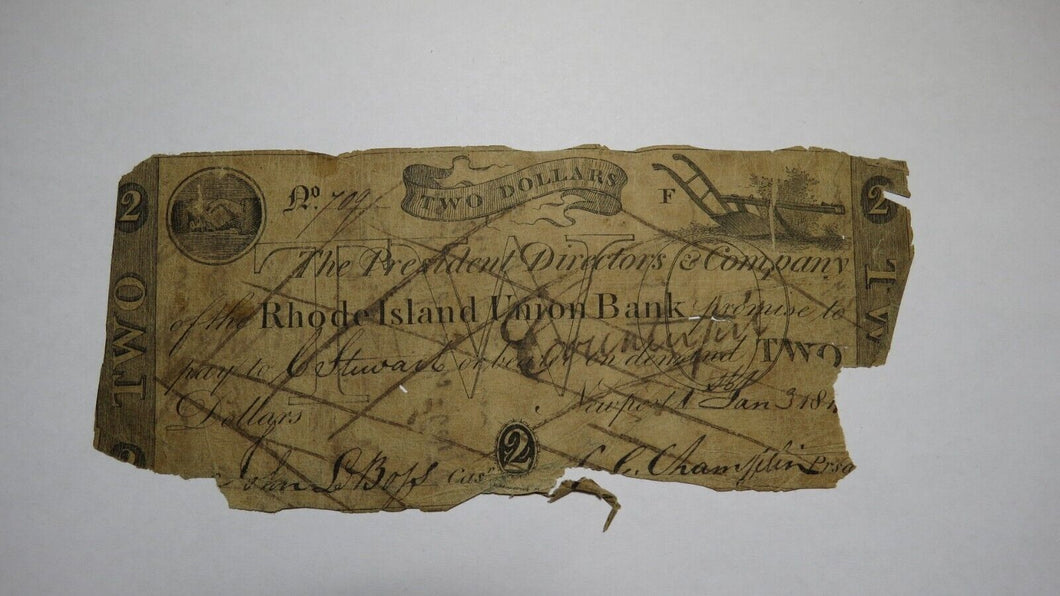 2
No. 709
TWO DOLLARS
F
2
TWO
The President Directors & Company
of the Rhode Island Union Bank promise to
pay to C Stewart or bearer on demand TWO
Dollars
Newport Jan 3 18
2
John L Boss Cas
C. Champlin Pres
TWO
2
TW